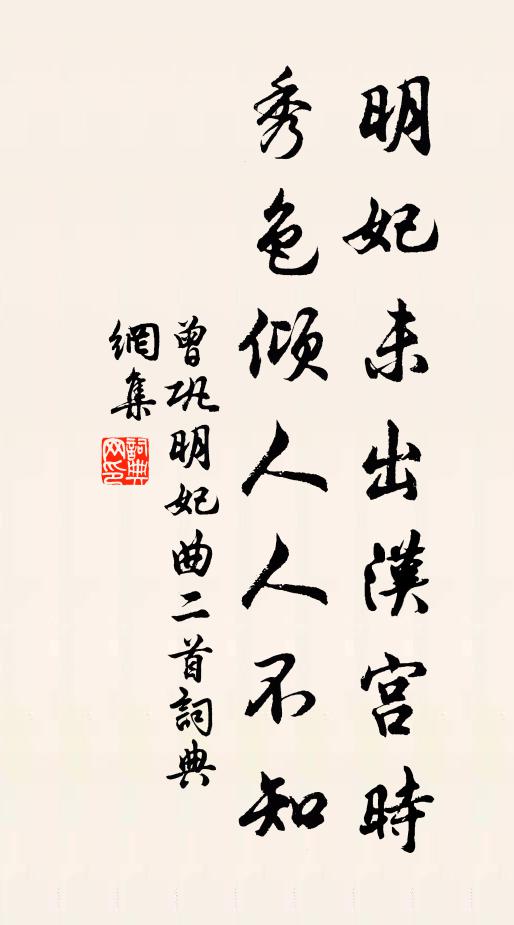 明妃未出漢宮時
秀色傾人人不知
曾巩明妃曲二首詞典
網集
詞典網印